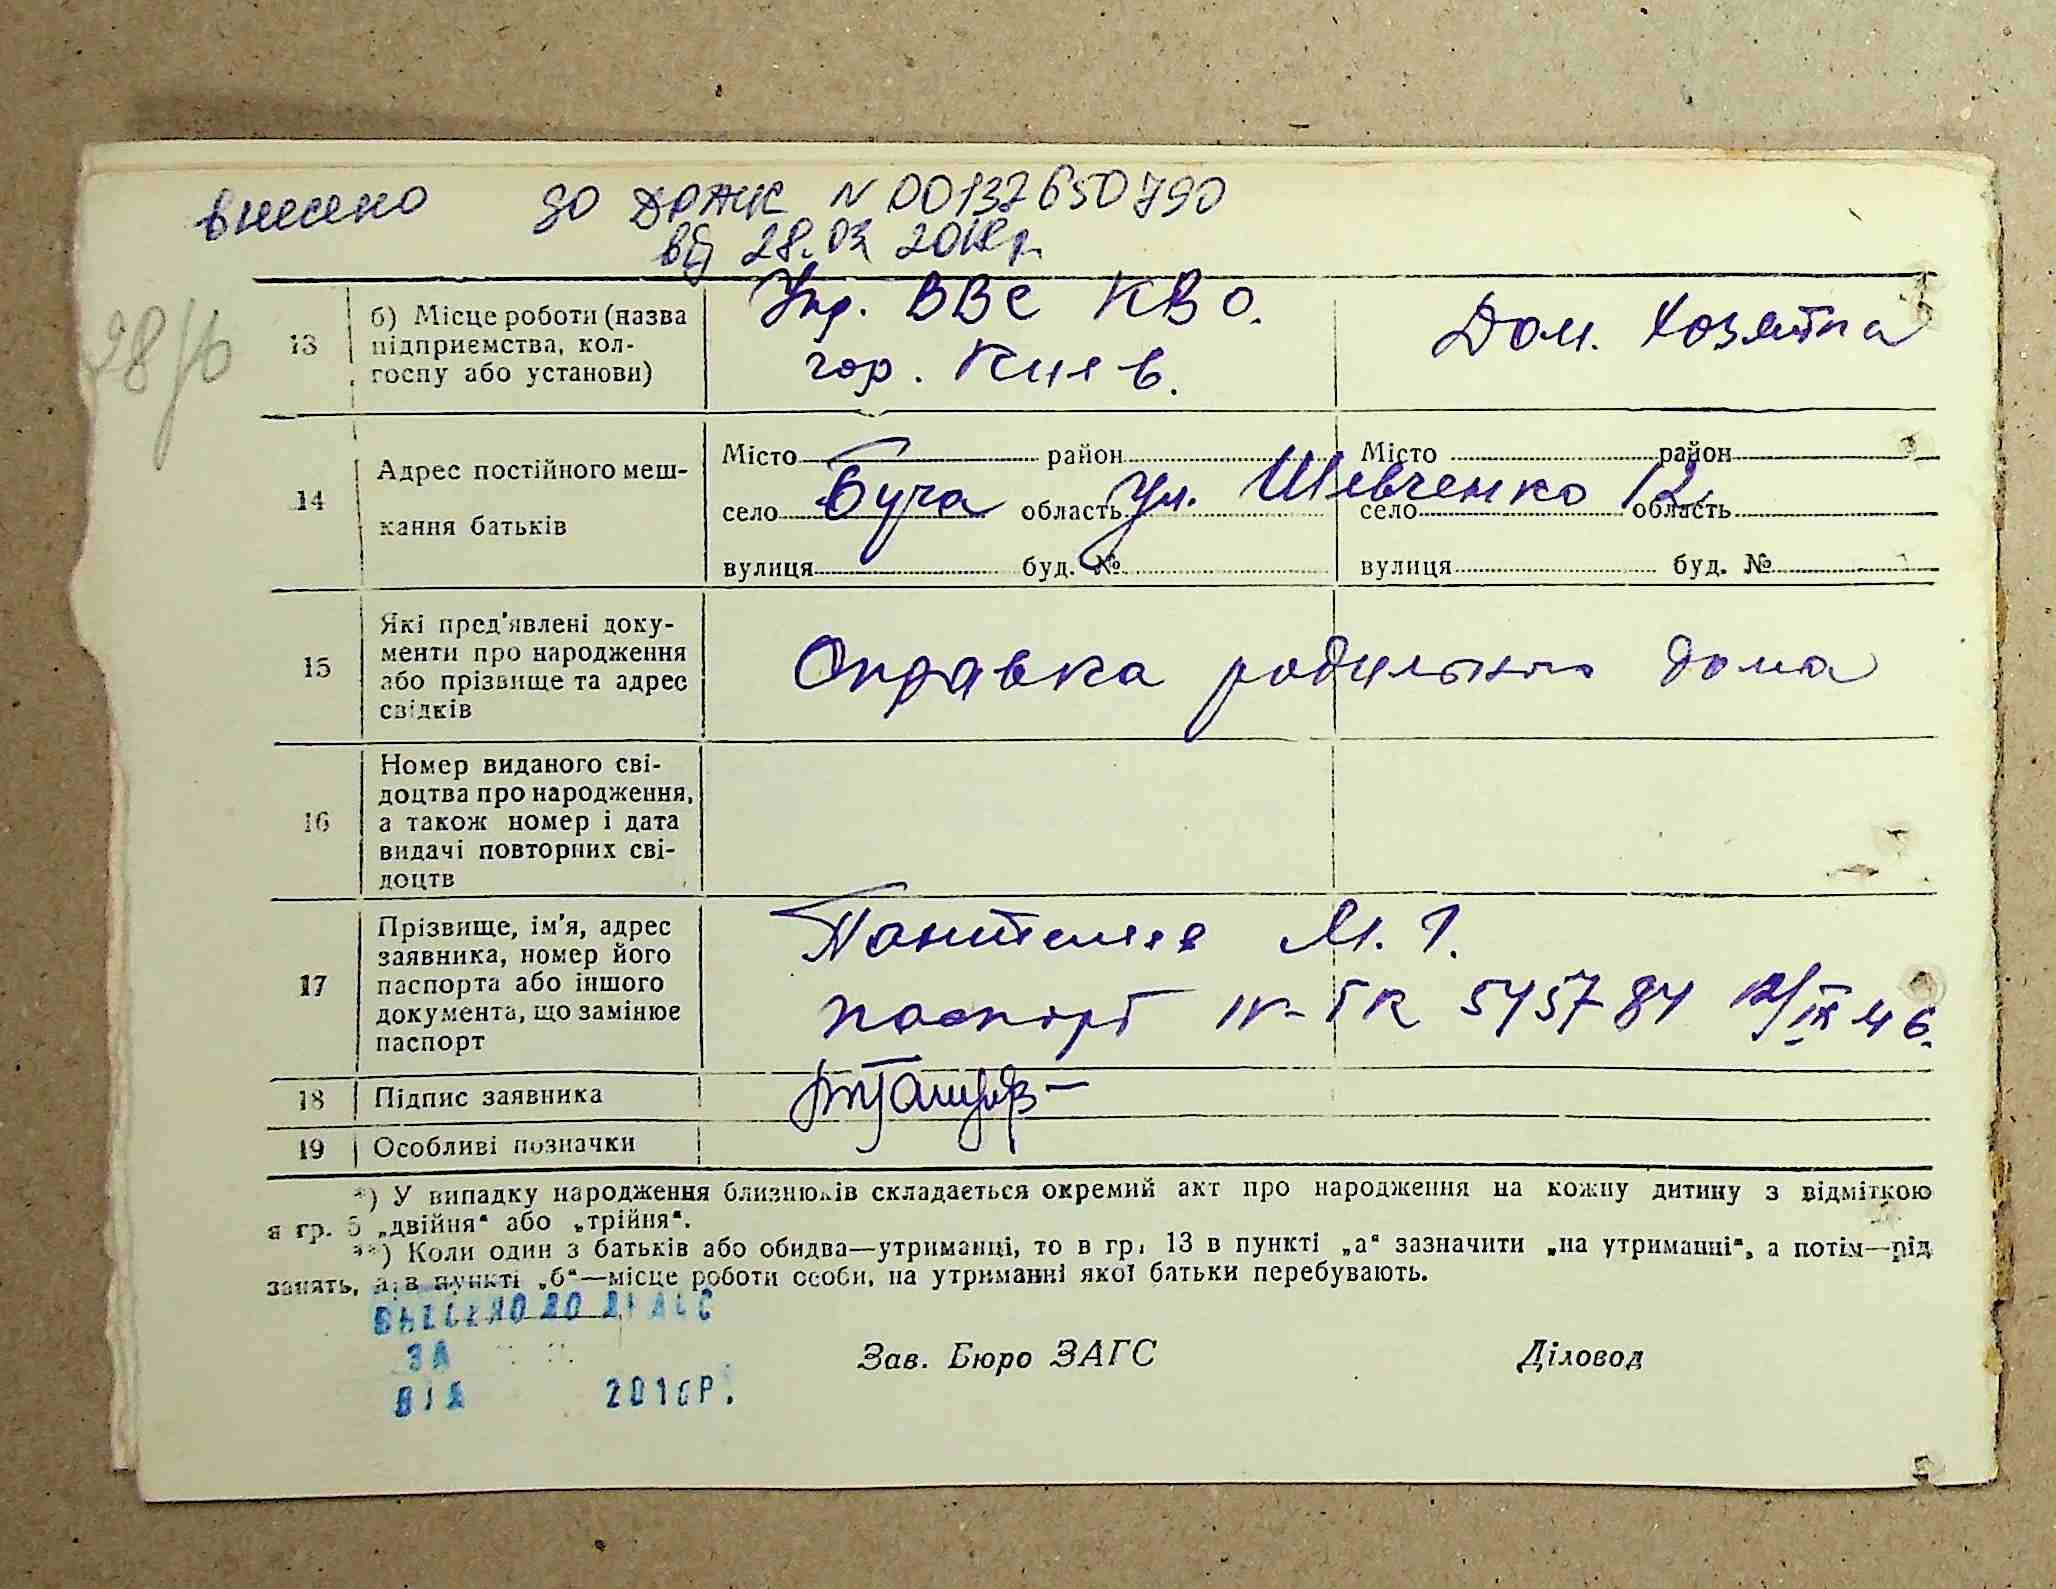 внесено до ДРАЦС N 00137650790
від 28.03 2018р.
28/10
13
б) Місце роботи (назва
підприємства, кол-
госпу або установи)
Упр. ВВС КВО.
гор. Киев.
Дом. хозяйка
14
Адрес постійного меш-
кання батьків
Місто район Місто район
Буча ул. Шевченко 12
село область село область
вулиця буд. № вулиця буд. №
15
Які пред'явлені доку-
менти про народження
або прізвище та адрес
свідків
Справка родильного дома
16
Номер виданого сві-
доцтва про народження,
а також номер і дата
видачі повторних сві-
доцтв
17
Прізвище, ім'я, адрес
заявника, номер його
паспорта або іншого
документа, що замінює
паспорт
Пантелеев М. Г.
паспорт IV-ГК 545784 12/IX 46.
18 Підпис заявника
19 Особливі позначки
*) У випадку народження близнюків складається окремий акт про народження на кожну дитину з відміткою
в гр. 5 „двійня“ або „трійня“.
**) Коли один з батьків або обидва—утриманці, то в гр. 13 в пункті „а“ зазначити „на утриманні“, а потім—рід
занять, а в пункті „б“—місце роботи особи, на утриманні якої батьки перебувають.
ВНЕСЕНО ДО
ЗА
ВІД 2016Р.
Зав. Бюро ЗАГС Діловод